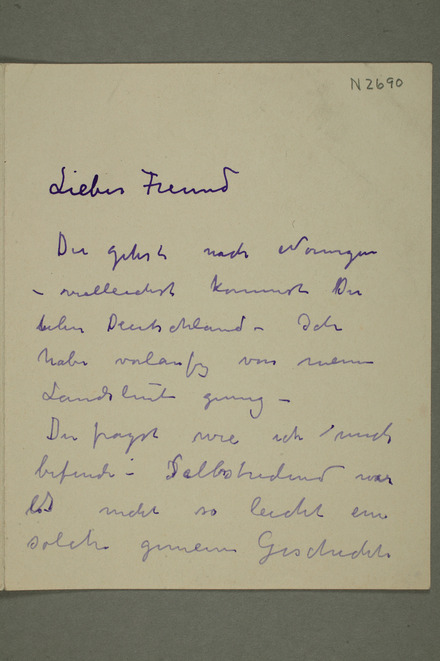 N2690
Lieber Freund
Du gehst nach Norwegen
- vielleicht kommst Du
über Deutschland - Ich
habe vorläufig von meinen
Landsleute genug -
Du fragst wie ich mich
befinde - Selbstredend war
es nicht so leicht eine
solche gemeine Geschichte